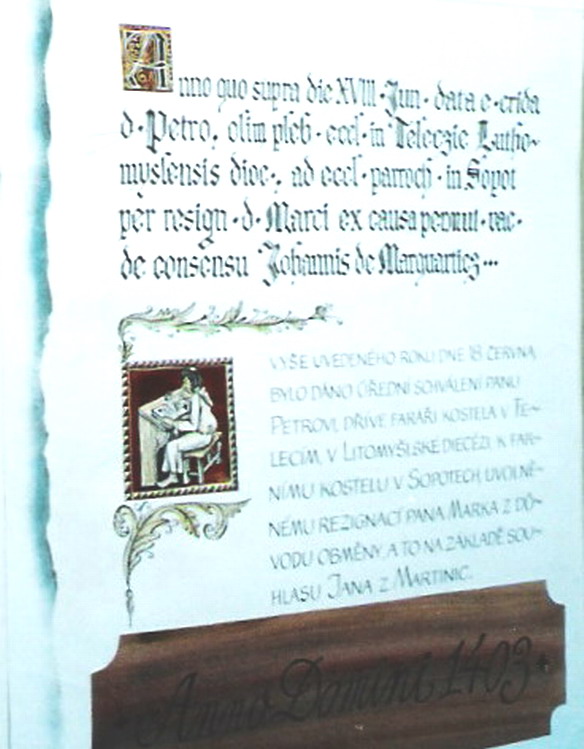 Anno quo supra die XVIII · Jun · data e · crida
d · Petro, olim pleb · eccl · in Teleczie Lutho-
myslensis dioc ·, ad eccl · parroch · in Sopot
per resign · d · Marci ex causa permut · rac-
de consensu Johannis de Marquarticz...
VYŠE UVEDENÉHO ROKU DNE 18 ČERVNA
BYLO DÁNO ÚŘEDNÍ SCHVÁLENÍ PANU
PETROVI, DŘÍVE FARÁŘI KOSTELA V TE-
LECÍM, V LITOMYŠLSKÉ DIECÉZI, K FAR-
NÍMU KOSTELU V SOPOTECH, UVOLNĚ-
NÉMU REZIGNACÍ PANA MARKA Z DŮ-
VODU OBMĚNY, A TO NA ZÁKLADĚ SOU-
HLASU JANA Z MARTINIC.
Anno Domini 1403